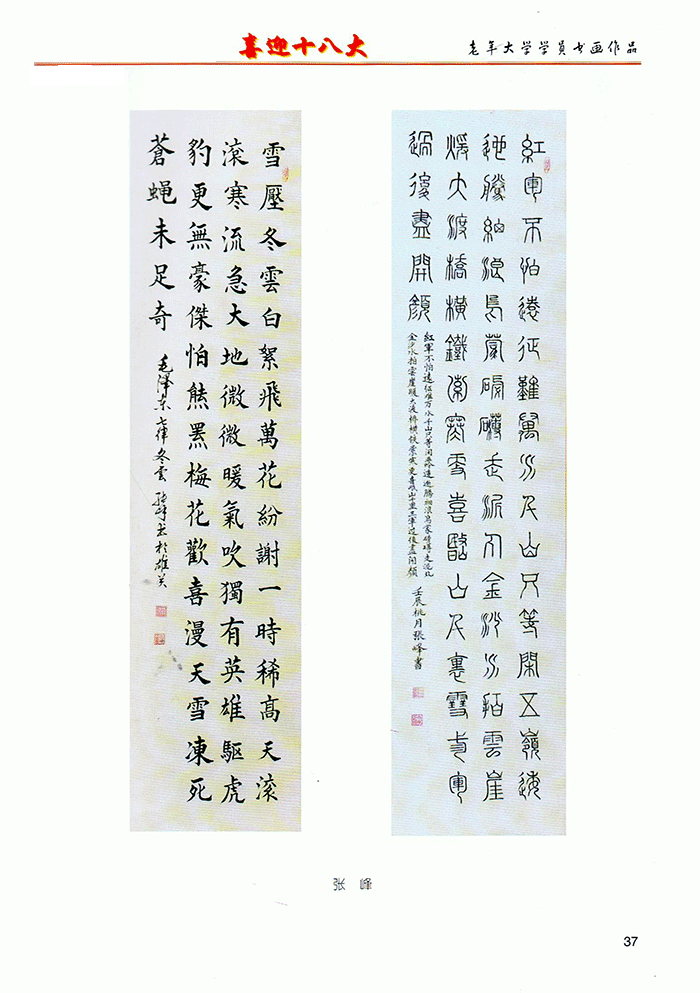 喜迎十八大
老年大学学员书画作品
紅軍不怕遠征難萬水千山只等閑五嶺逶
迤騰細浪烏蒙磅礴走泥丸金沙水拍雲崖
暖大渡橋橫鐵索寒更喜岷山千里雪三軍
過後盡開顔
紅軍不怕遠征难万水千山只等闲五岭逶迤騰細浪烏蒙磅礴走泥丸
金沙水拍雲崖暖大渡桥横铁索寒更喜岷山千里雪三軍过後盡开颜
壬辰桃月張峰書
雪壓冬雲白絮飛萬花紛謝一時稀高天滚
滚寒流急大地微微暖氣吹獨有英雄驅虎
豹更無豪傑怕熊羆梅花歡喜漫天雪凍死
蒼蝿未足奇
毛澤東七律冬雲 張峰书於雄关
张 峰
37